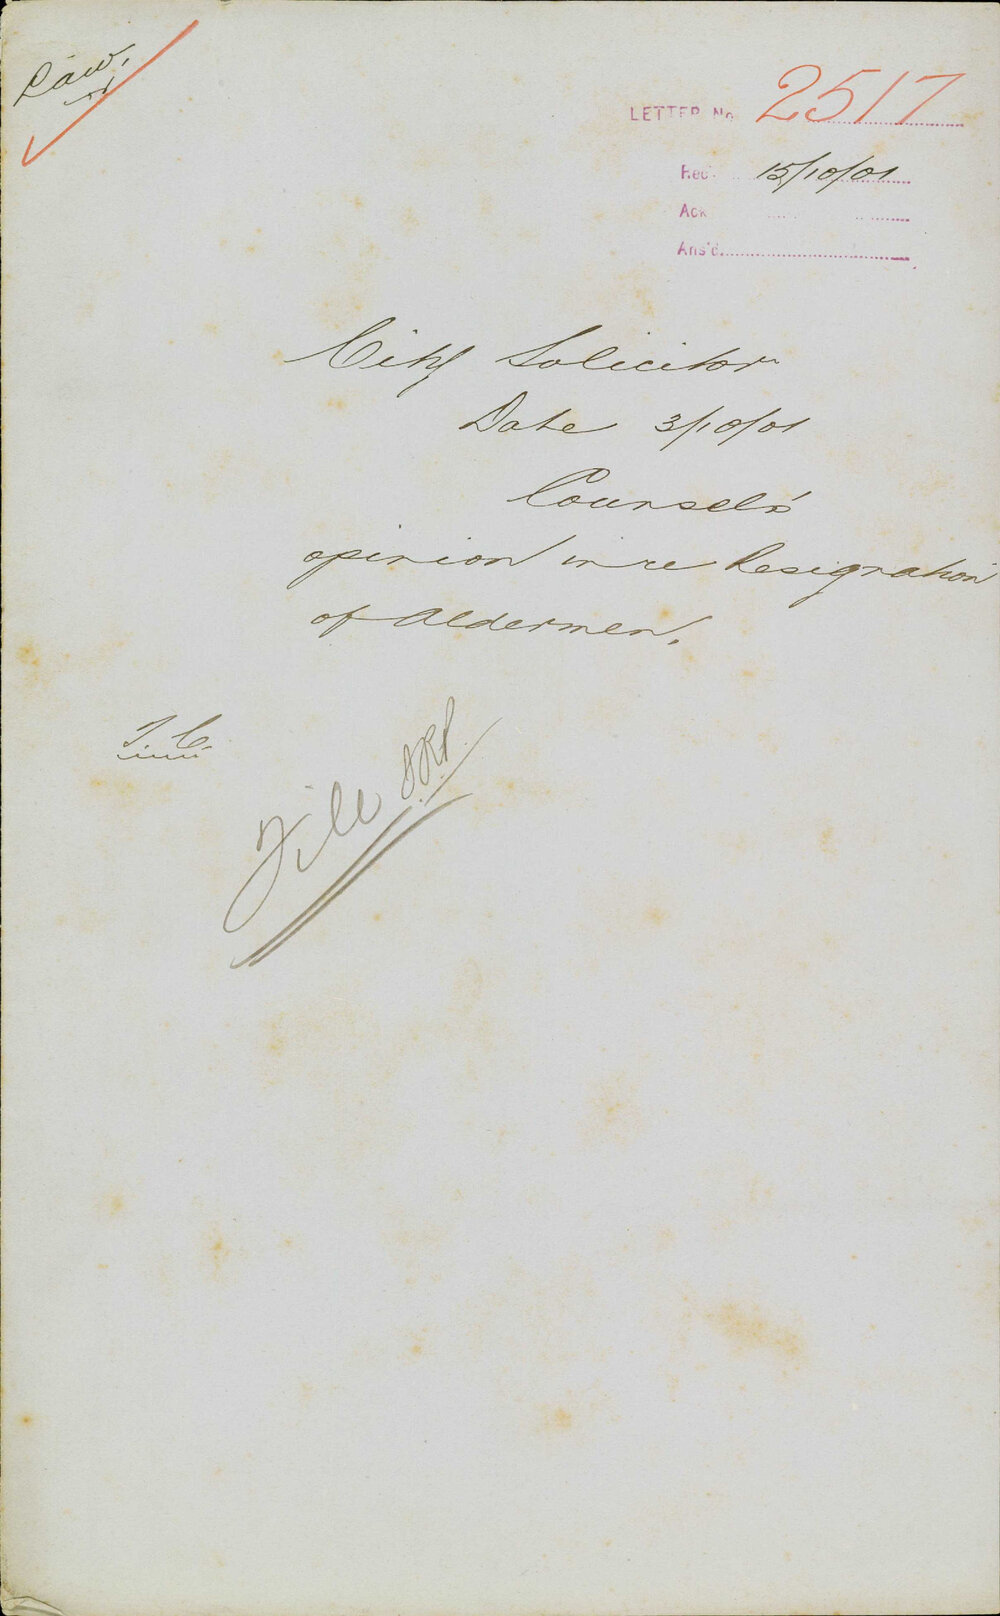 Law.
LETTER No 2517
Rec 15/10/01
Ack
Ans'd
City Solicitor
Date 3/10/01
Counsel's
opinion in re Resignation
of Aldermen.
T. C.
File